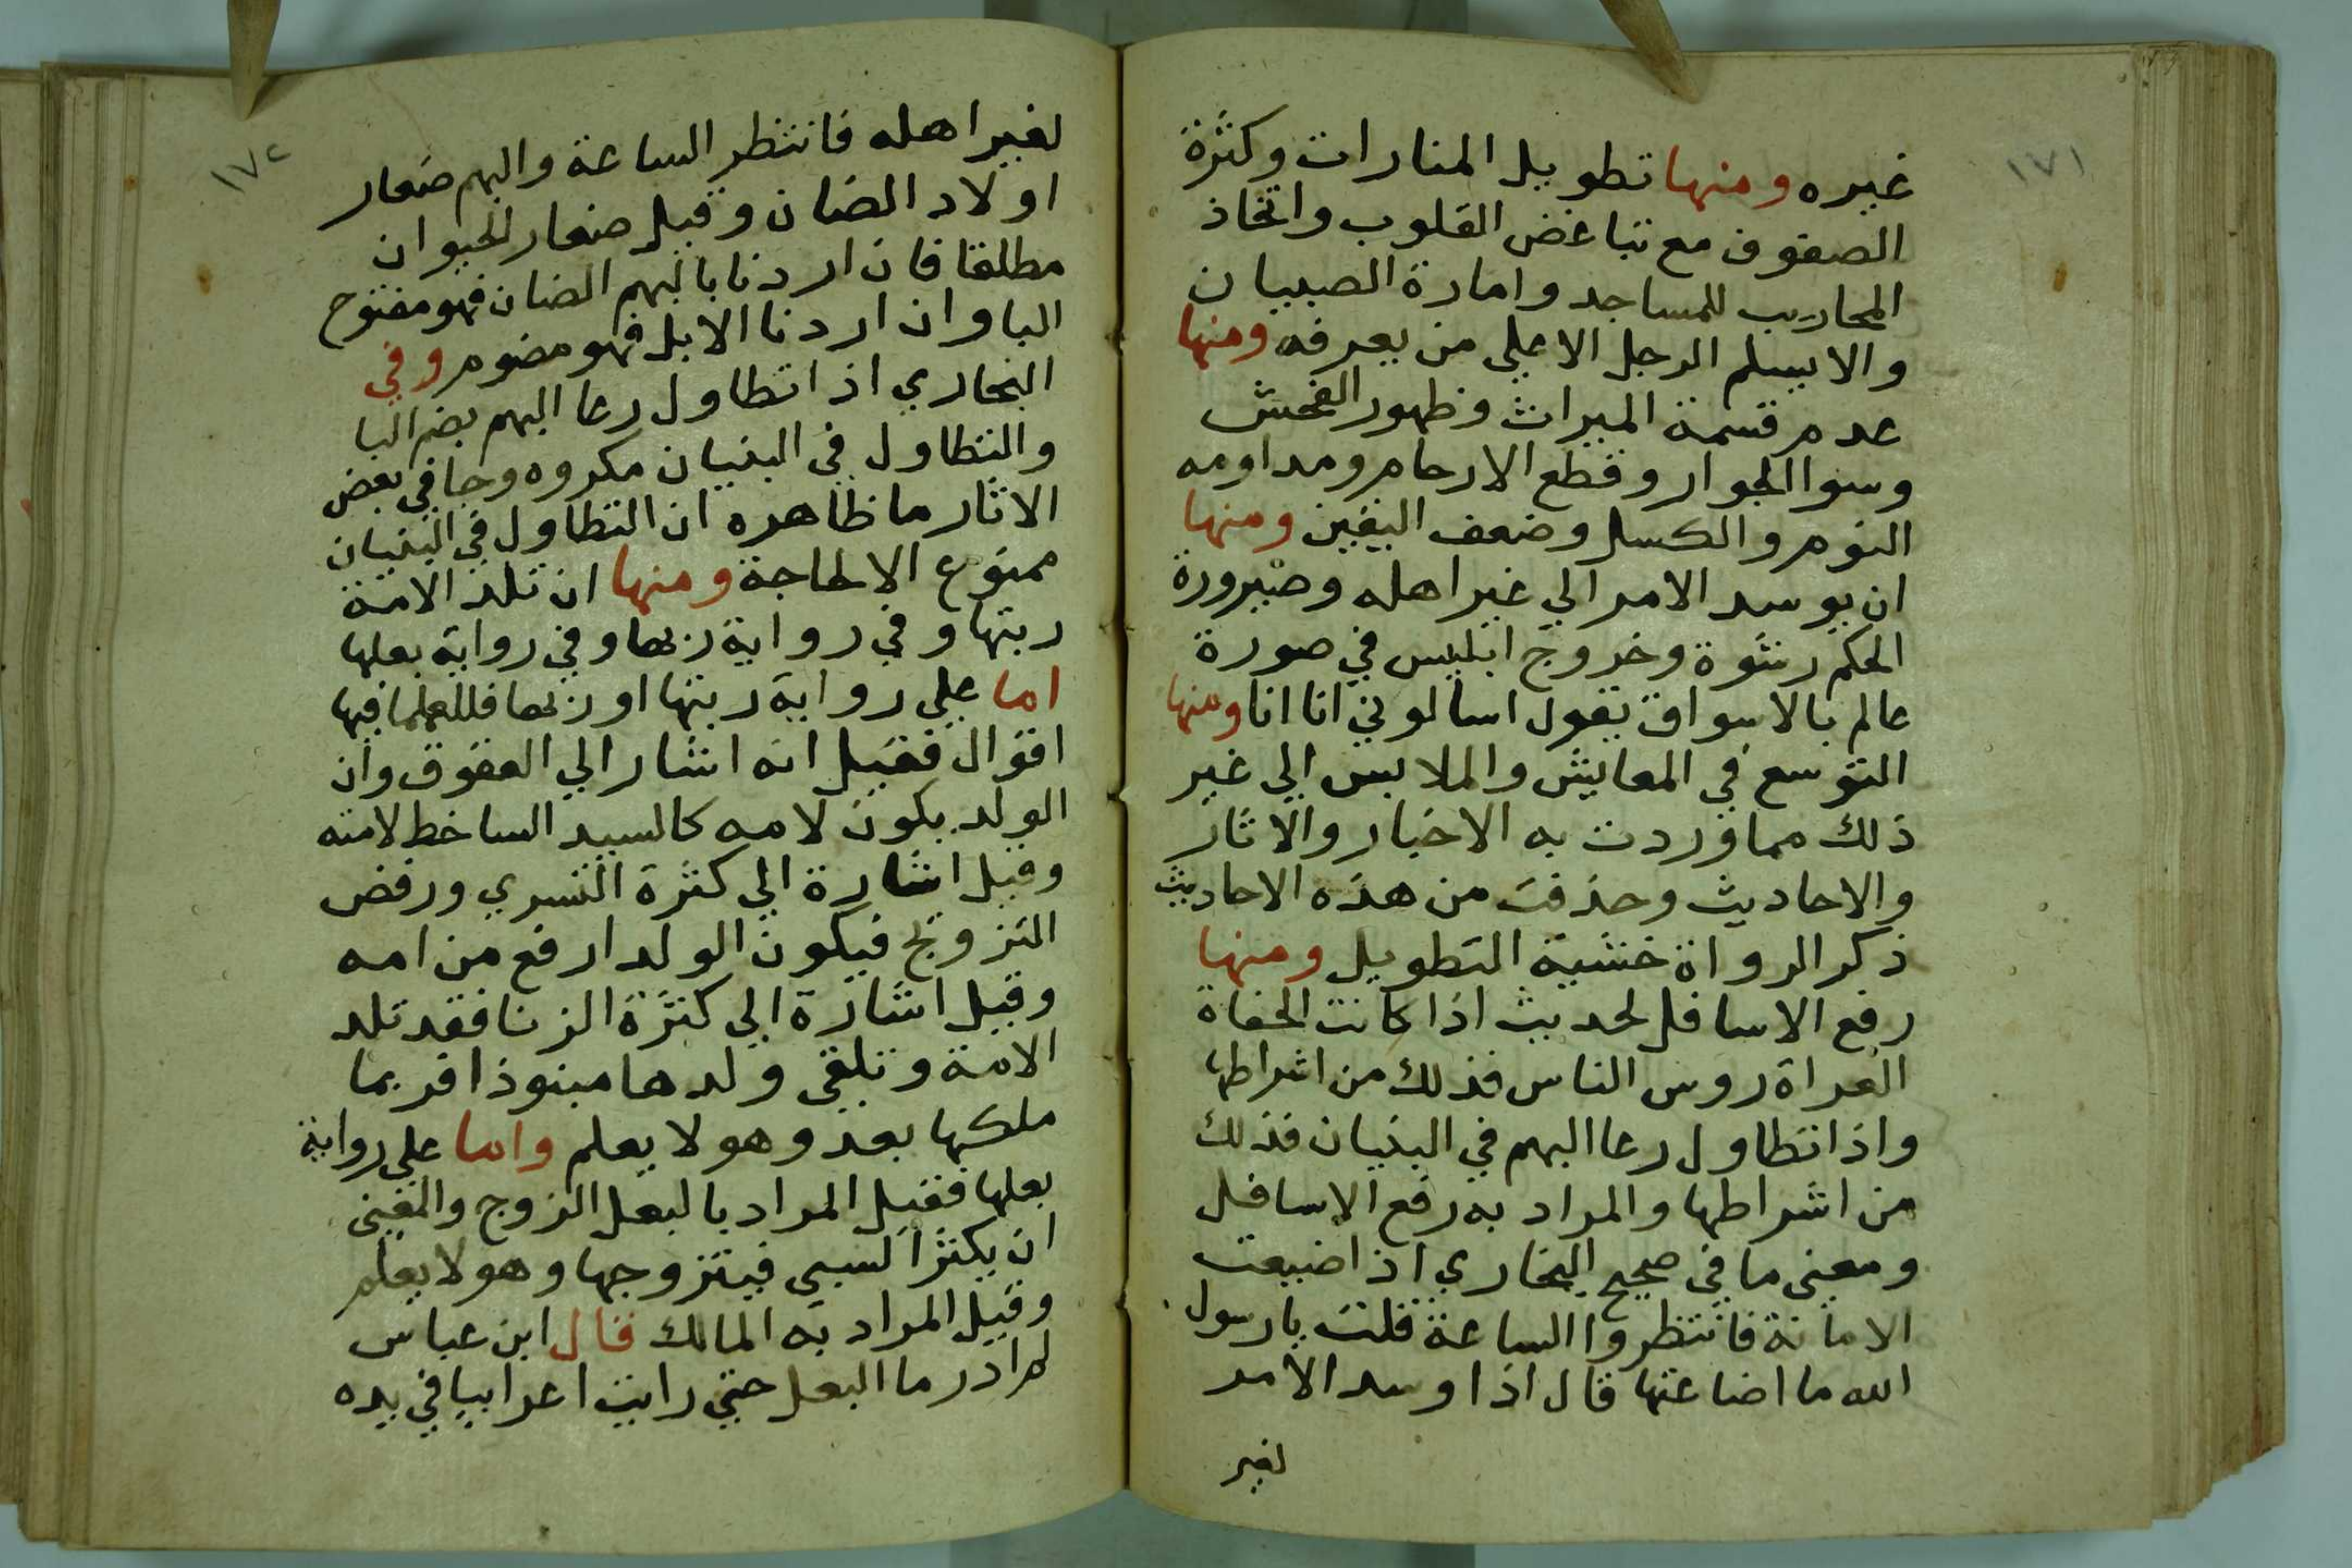 ١٧١
غيره ومنها تطويل المنارات وكثرة
الصفوف مع تباغض القلوب واتخاذ
المحاريب للمساجد وامارة الصبيان
والا يسلم الرجل الا علي من يعرفه ومنها
عدم قسمة الميراث وظهور الفحش
وسوا الجوار وقطع الارحام ومداومه
النوم والكسل وضعف اليقين ومنها
ان يوسد الامر الي غير اهله وصيرورة
الحكم رشوة وخروج ابليس في صورة
عالم بالاسواق يقول اسالوني انا انا ومنها
التوسع في المعايش والملابس الي غير
ذلك مما وردت به الاخبار والاثار
والاحاديث وحذفت من هذه الاحاديث
ذكر الرواة خشية التطويل ومنها
رفع الاسافل لحديث اذا كانت الحفاة
العراة روس الناس فذلك من اشراطها
واذا تطاول رعا البهم في البنيان فذلك
من اشراطها والمراد به رفع الاسافل
ومعنى ما في صحيح البخاري اذا ضيعت
الامانة فانتظروا الساعة قلت يا رسول
الله ما اضاعتها قال اذا وسد الامر
لغير
١٧٢
لغير اهله فانتظر الساعة والبهم صغار
اولاد الضان وقيل صغار الحيوان
مطلقا فان اردنا بالبهم الضان فهو مفتوح
البا وان اردنا الابل فهو مضوم وفي
البخاري اذا تطاول رعا البهم بضم البا
والتطاول في البنيان مكروه وجا في بعض
الاثار ما ظاهره ان التطاول في البنيان
ممنوع الا لحاجة ومنها ان تلد الامة
ربتها وفي رواية ربها وفي رواية بعلها
اما علي رواية ربتها او ربها فللعلما فيها
اقوال فقيل انه اشار الي العقوق وان
الولد يكون لامه كالسيد الساخط لامته
وقيل اشارة الي كثرة التسري ورفض
التزوج فيكون الولد ارفع من امه
وقيل اشارة الي كثرة الزنا فقد تلد
الامة وتلقي ولدها منبوذا فربما
ملكها بعد وهو لا يعلم واما علي رواية
بعلها فقيل المراد بالبعل الزوج والمعنى
ان يكثر السبي فيتزوجها وهو لا يعلم
وقيل المراد به المالك قال ابن عباس
لم ادر ما البعل حتي رايت اعرابيا في يده